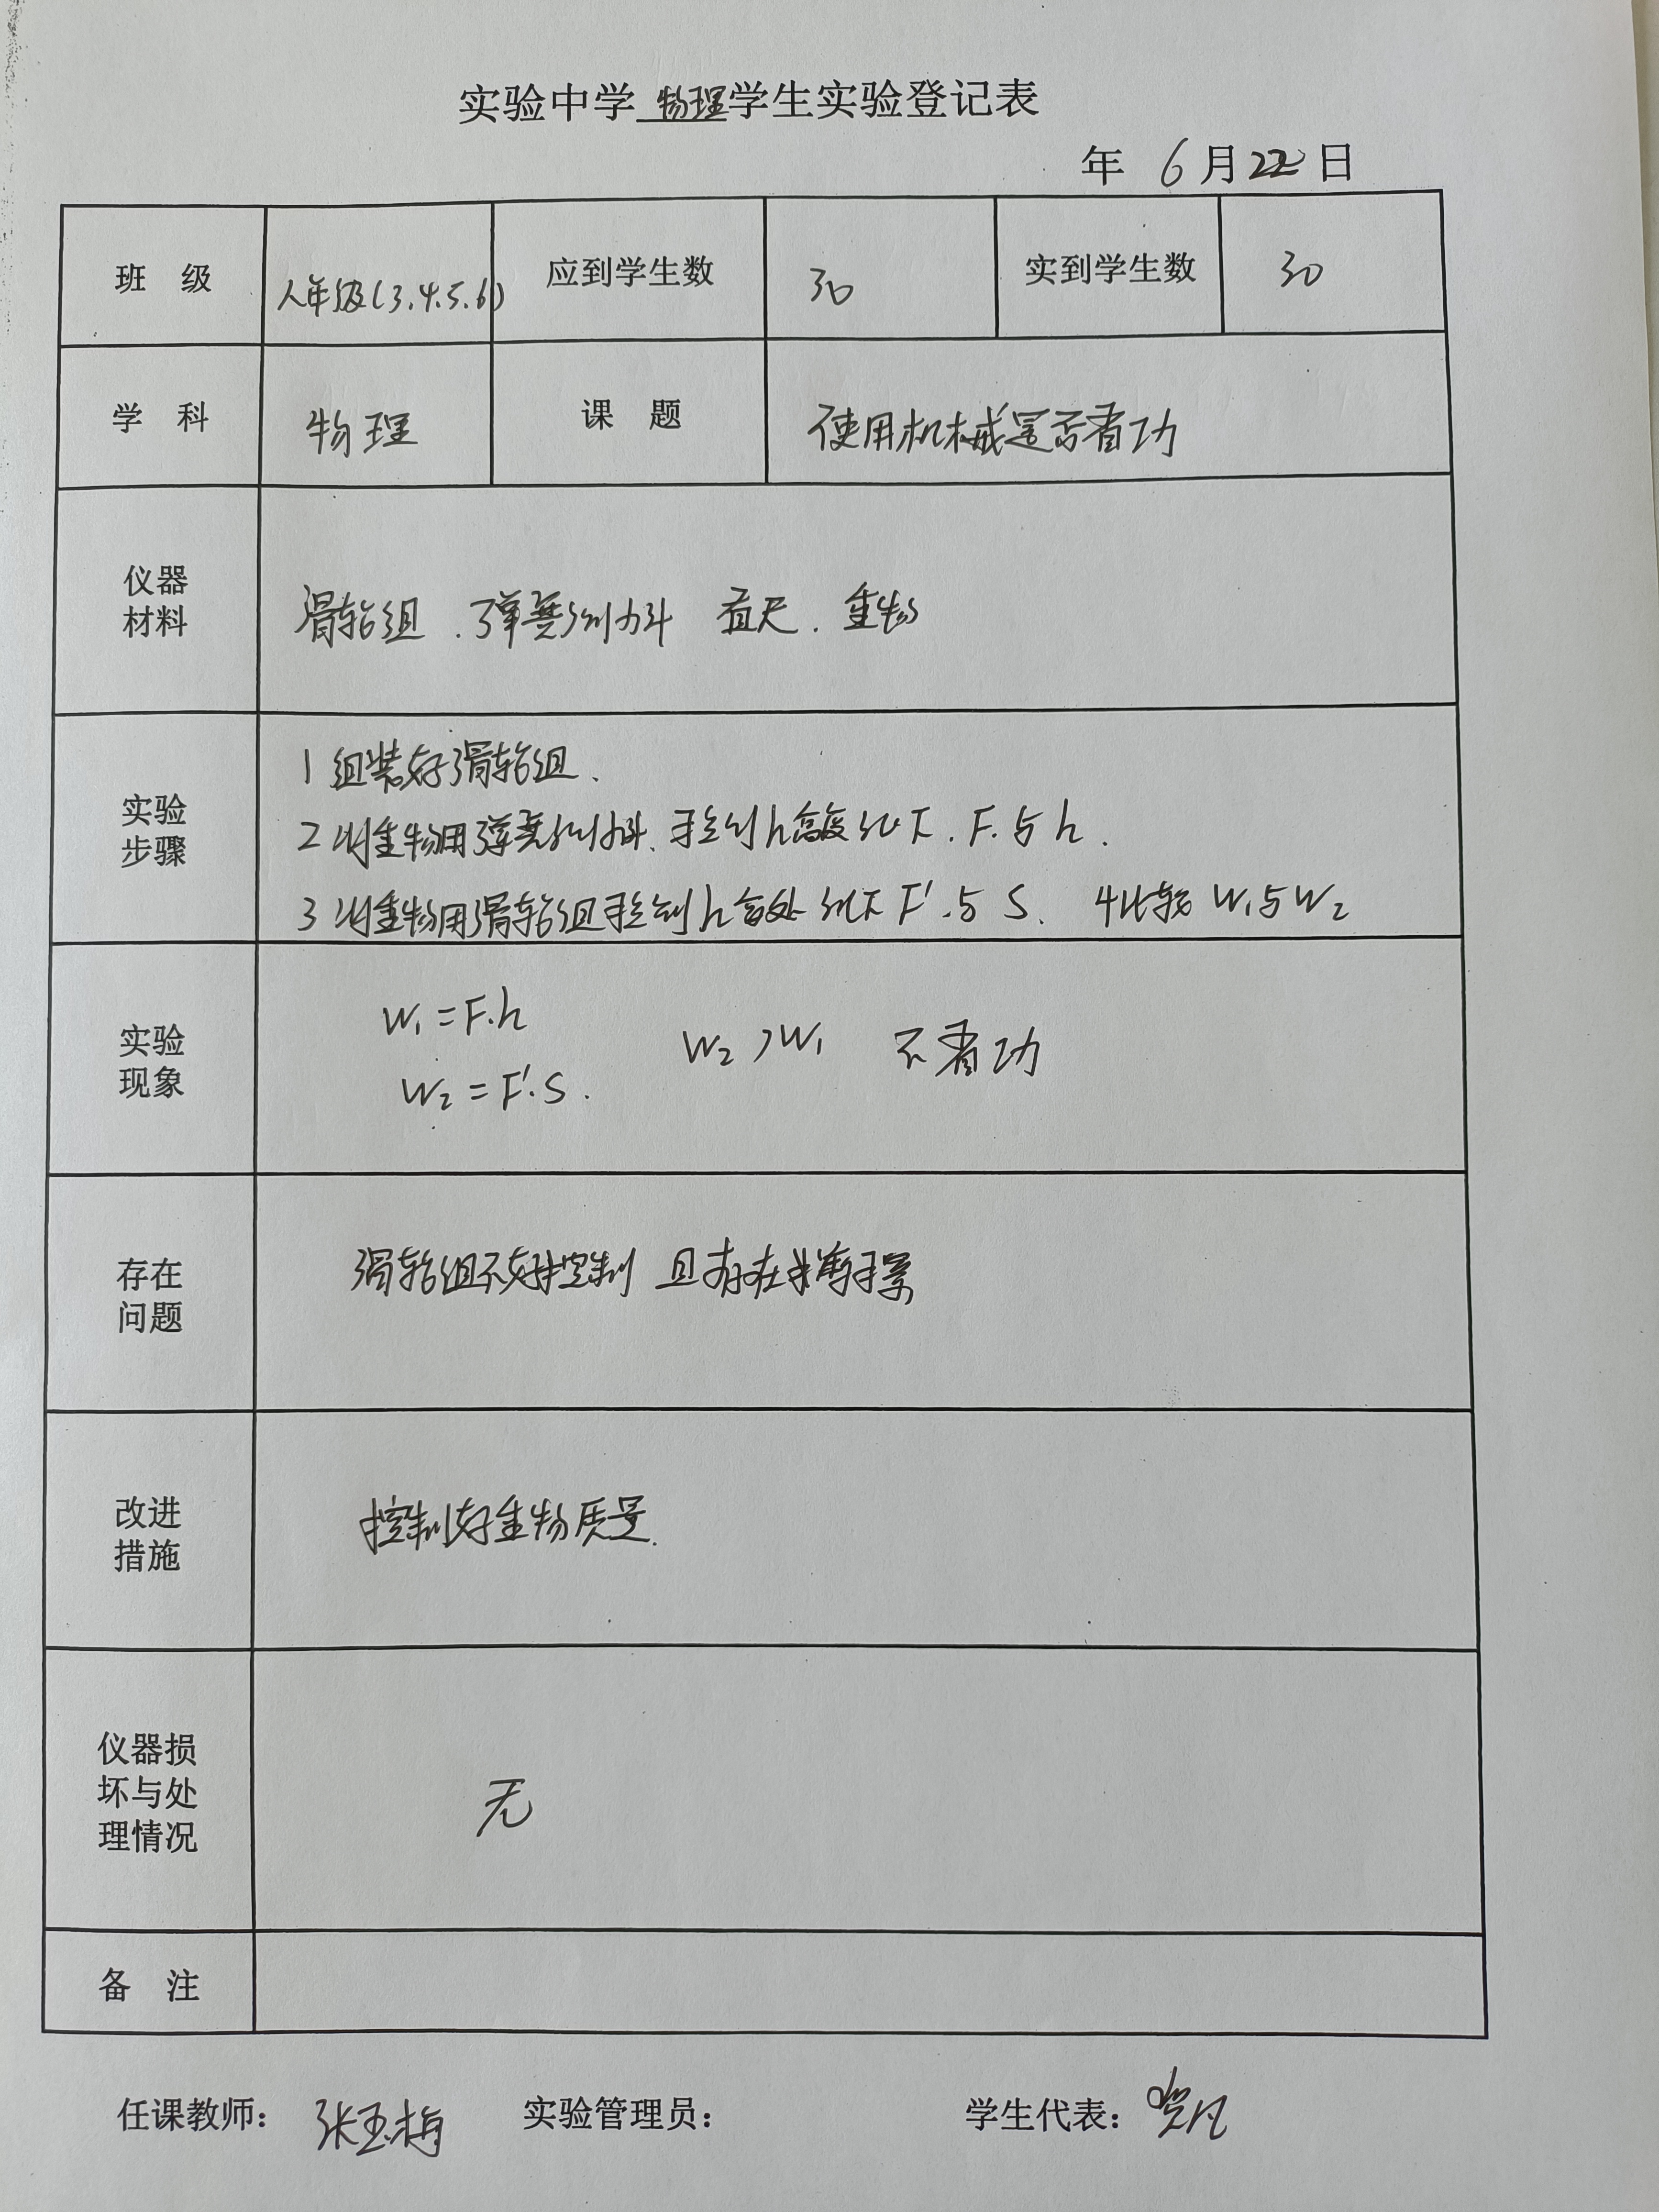 实验中学 物理 学生实验登记表
年 6月22日
班 级 八年级(3.4.5.6) 应到学生数 30 实到学生数 30
学 科 物理 课 题 使用机械是否省功
仪器
材料
滑轮组.弹簧测力计 直尺.重物
实验
步骤
1 组装好滑轮组.
2 将重物用弹簧测力计.提到h高度记下.F.与h.
3 将重物用滑轮组提到h高处记下F'.与 S. 4比较 W₁与W₂
实验
现象
W₁=F.h
W₂>W₁ 不省功
W₂=F'.S.
存在
问题
滑轮组不好控制 且存在摩擦
改进
措施
控制好重物质量.
仪器损
坏与处
理情况
无
备 注
任课教师: 张玉梅 实验管理员: 学生代表: